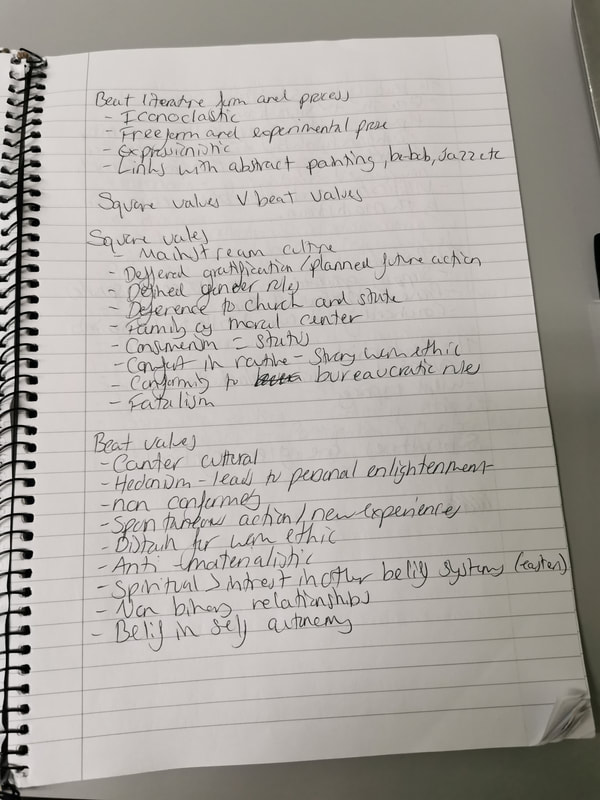 Beat literature form and process
- Iconoclastic
- Freeform and experimental prose
- Expressionistic
- Links with abstract painting, be-bob, Jazz etc
Square values V beat values
Square vales
- Mainstream culture
- Deffered gratification/planned future action
- Defined gender roles
- Deference to church and state
- Family as moral center
- Consumerism = status
- Comfort in routine - strong work ethic
- Conformity to bureaucratic rules
- Fatalism
Beat values
- Counter cultural
- Hedonism - leads to personal enlightenment
- non conformity
- Spontaneous action/new experience
- Distain for work ethic
- Anti-materialistic
- Spiritual > intrest in other belify systems (eastern)
- Non binary relationships
- Belif in self autonomy